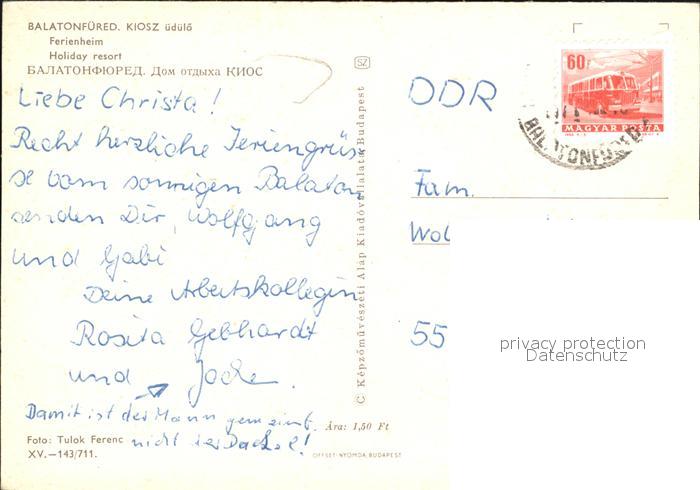 BALATONFÜRED. KIOSZ üdülő
Ferienheim
Holiday resort
БАЛАТОНФЮРЕД. Дом отдыха КИОС
SZ
Liebe Christa!
Recht herzliche Feriengrüs-
se vom sonnigen Balaton
senden Dir, Wolfgang
und Gabi
Deine Arbeitskollegin
Rosita Gebhardt
und Jochen.
Damit ist der Mann gemeint.
nicht der Dackel!
Foto: Tulok Ferenc
XV.—143/711.
Ára: 1,50 Ft
OFFSET-NYOMDA, BUDAPEST
C Képzőművészeti Alap Kiadóvállalata, Budapest
DDR
60f
MAGYAR POSTA
BALATONFÜRED
Fam.
Wol
55
privacy protection
Datenschutz